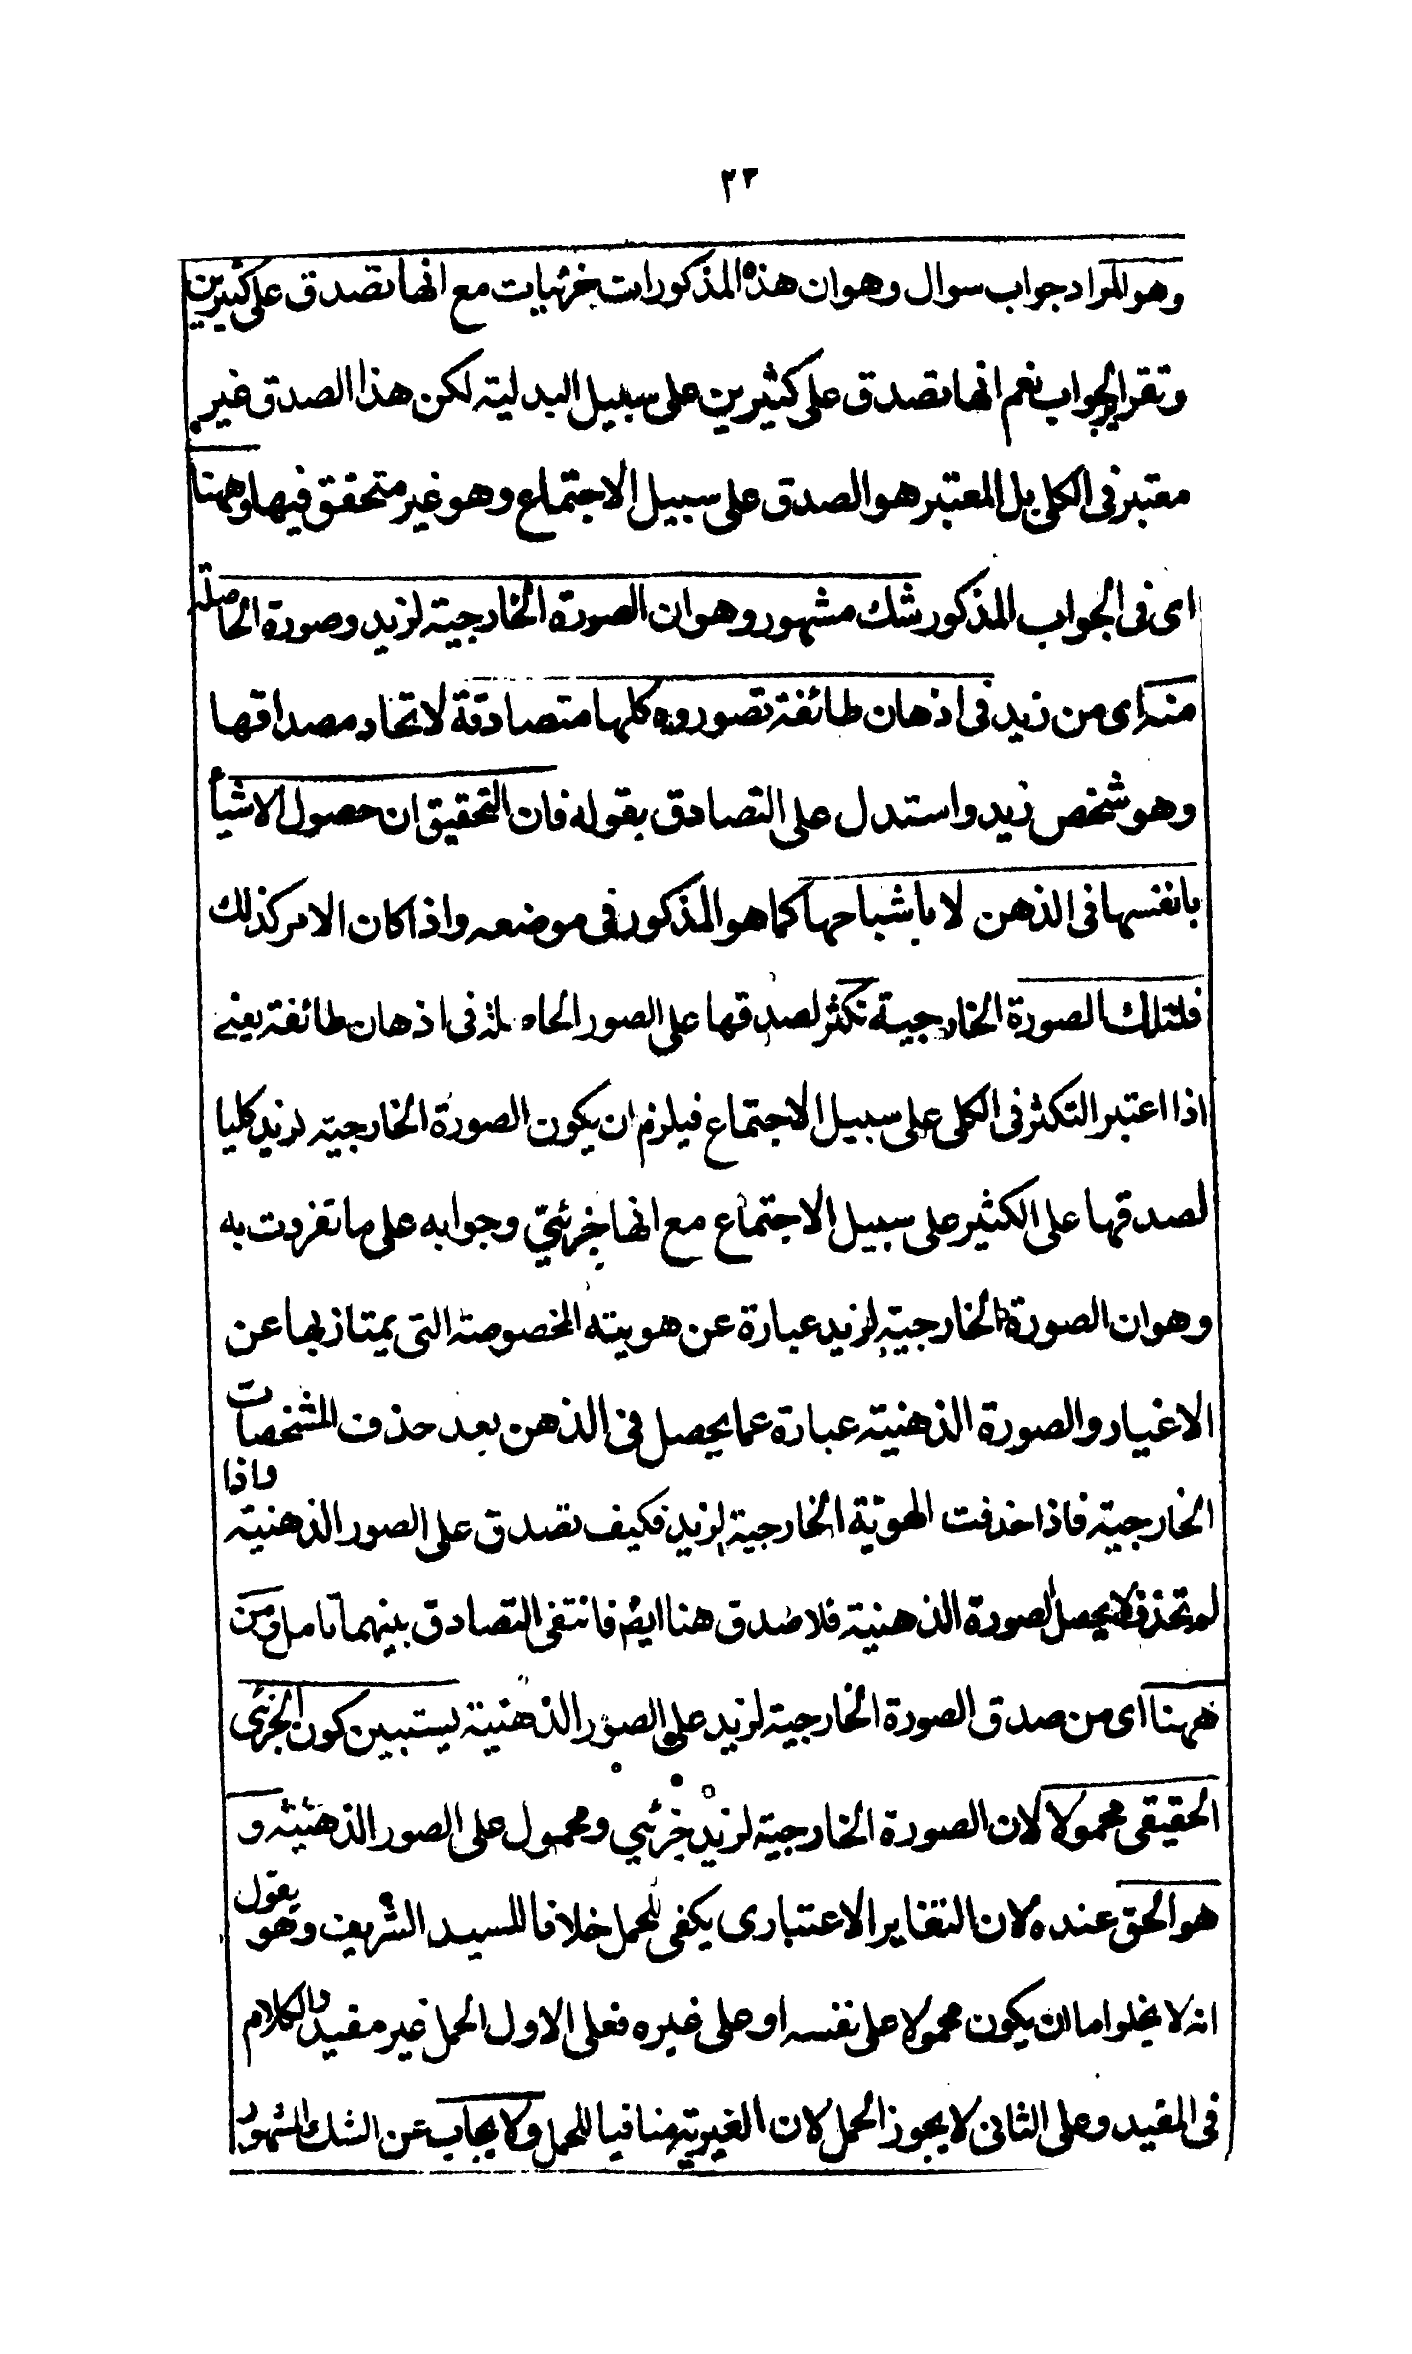 ٢٣
وهو المراد جواب سوال وهو ان هذه المذكورات جزئيات مع انها تصدق على كثيرين
وتقرير الجواب نعم انها تصدق على كثيرين على سبيل البدلية لكن هذا الصدق غير
معتبر فى الكلى بل المعتبر هو الصدق على سبيل الاجتماع وهو غير متحقق فيها وههنا
اى فى الجواب المذكور شك مشهور وهو ان الصورة الخارجية لزيد وصورة الحاصلة
منه اى من زيد فى اذهان طائفة تصوروه كلها متصادقة لاتحاد مصداقها
وهو شخص زيد واستدل على التصادق بقوله فان التحقيق ان حصول الاشياء
بانفسها فى الذهن لا باشباحها كما هو المذكور فى موضعه واذا كان الامر كذلك
فلتلك الصورة الخارجية تكثر لصدقها على الصور الحاصلة فى اذهان طائفة يعنے
اذا اعتبر التكثر فى الكلى على سبيل الاجتماع فيلزم ان يكون الصورة الخارجية لزيد كليا
لصدقها على الكثير على سبيل الاجتماع مع انها جزئىّ وجوابه على ما تفردت به
وهو ان الصورة الخارجية لزيد عبارة عن هويته المخصوصة التى يمتاز بها عن
الاغيار والصورة الذهنية عبارة عما يحصل فى الذهن بعد حذف المشخصات
الخارجية فاذا حذفت الهوية الخارجية لزيد فكيف تصدق على الصور الذهنية واذا
لم تحذف لا يحصل الصورة الذهنية فلا صدق هنا ايضم فانتفى التصادق بينهما تامل ومن
ههنا اى من صدق الصورة الخارجية لزيد على الصور الذهنية يستبين كون الجزئى
الحقيقى محمولا لان الصورة الخارجية لزيد جزئى ومحمول على الصور الذهنية و
هو الحق عنده لان التغاير الاعتبارى يكفى للحمل خلافا للسيد الشريف وهو يقول
انه لا يخلوا ما ان يكون محمولا على نفسه او على غيره فعلى الاول الحمل غير مفيد والكلام
فى المفيد وعلى الثانى لا يجوز الحمل لان الغيرية منافيا للحمل ولا يجاب عن الشك المشهور